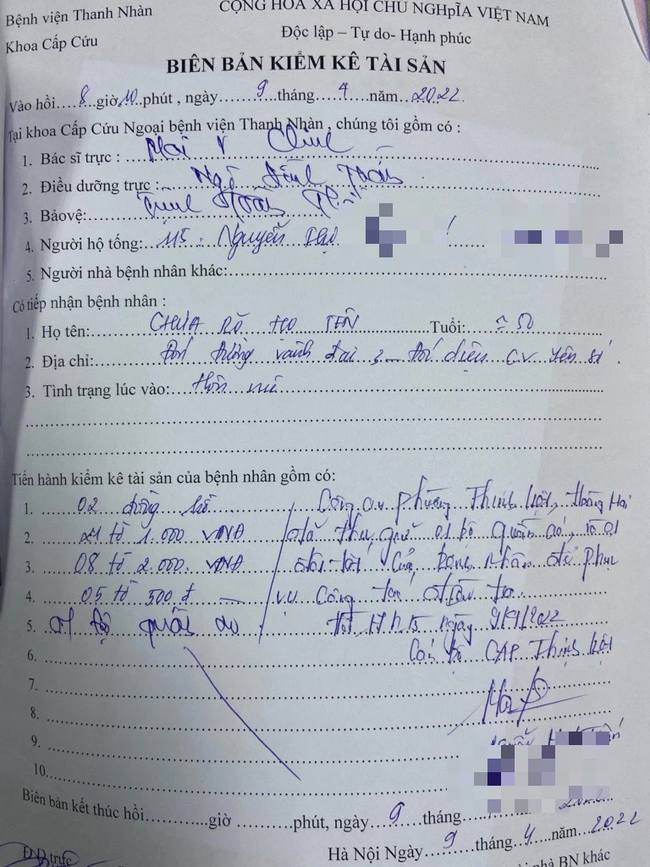 Bệnh viện Thanh Nhàn
CỘNG HÒA XÃ HỘI CHỦ NGHĨA VIỆT NAM
Khoa Cấp Cứu
Độc lập – Tự do- Hạnh phúc
BIÊN BẢN KIỂM KÊ TÀI SẢN
Vào hồi....8..giờ10.phút , ngày......9......tháng....4....năm..2022
Tại khoa Cấp Cứu Ngoại bệnh viện Thanh Nhàn , chúng tôi gồm có :
1. Bác sĩ trực :
2. Điều dưỡng trực : Ngô Đình
3. Bảo vệ:
4. Người hộ tống: 115. Nguyễn
5. Người nhà bệnh nhân khác:
Có tiếp nhận bệnh nhân :
1. Họ tên: CHƯA RÕ HỌ TÊN Tuổi:
2. Địa chỉ: đường vành đai 3 đối diện CV Yên Sở.
3. Tình trạng lúc vào: Hôn mê
Tiến hành kiểm kê tài sản của bệnh nhân gồm có:
1. 02 đồng hồ Công an phường Thịnh Liệt, Hoàng Mai
2. 21 tờ 1.000 VNĐ đã thu giữ 01 bộ quần áo, và 01
3. 08 tờ 2.000 VNĐ của bệnh nhân để phục
4. 05 tờ 500 đ vụ công tác điều tra
5. 01 bộ quần áo ngày 9/4/2022
6. Cán bộ CAP Thịnh Liệt
7.
8.
9.
10.
Biên bản kết thúc hồi............giờ............phút, ngày...9....tháng
Hà Nội Ngày...9...tháng..4..năm..2022
ĐD trực
nhà BN khác